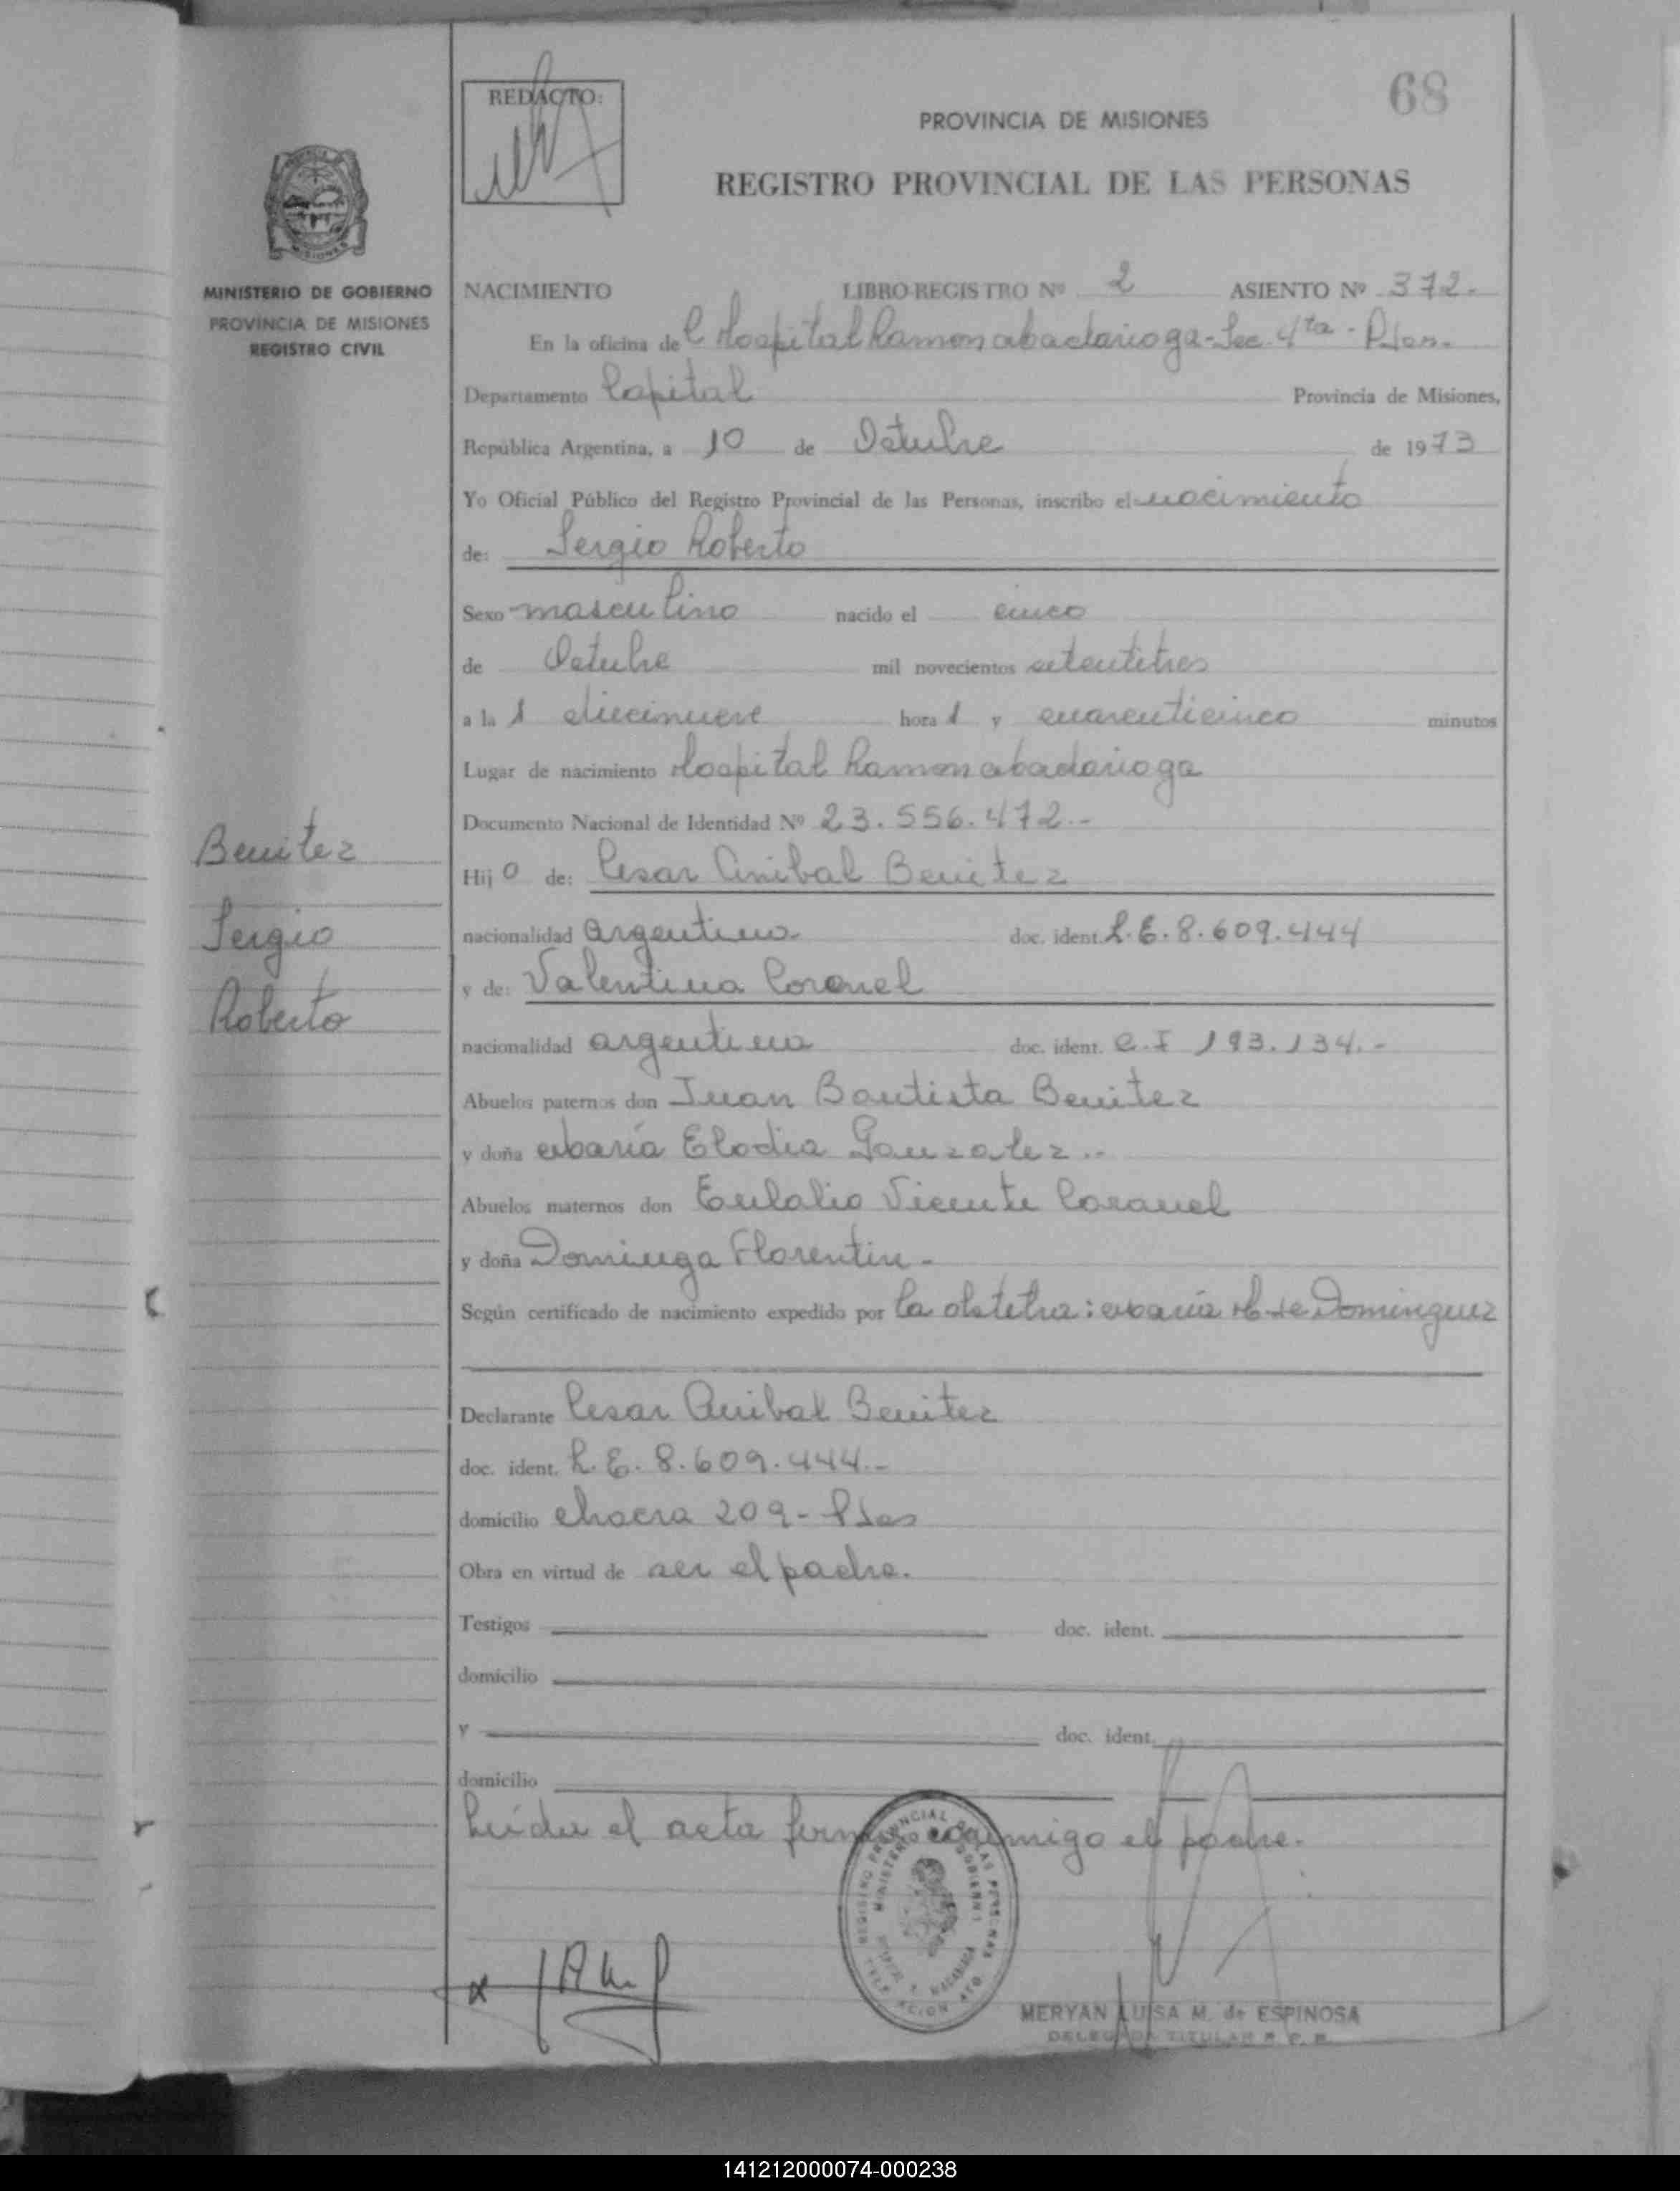 68
REDACTO:
PROVINCIA DE MISIONES
REGISTRO PROVINCIAL DE LAS PERSONAS
MINISTERIO DE GOBIERNO
PROVINCIA DE MISIONES
REGISTRO CIVIL
NACIMIENTO LIBRO REGISTRO Nº 2 ASIENTO Nº 372.
En la oficina del Hospital Ramon Madariaga - Sec. 4ta - Pdas.
Departamento Capital Provincia de Misiones,
República Argentina, a 10 de Octubre de 1973
Yo Oficial Público del Registro Provincial de las Personas, inscribo el nacimiento
de: Sergio Roberto
Sexo masculino nacido el cinco
de Octubre mil novecientos setentitres
a la s diecinueve hora s y cuarenticinco minutos
Lugar de nacimiento Hospital Ramon Madariaga
Documento Nacional de Identidad Nº 23.556.472.-
Benitez
Sergio
Roberto
Hij o de: Cesar Anibal Benitez
nacionalidad argentina doc. ident. L.E. 8.609.444
y de: Valentina Coronel
nacionalidad argentina doc. ident. C.I 193.134.-
Abuelos paternos don Juan Bautista Benitez
y doña María Elodia Gonzalez.-
Abuelos maternos don Eulalio Vicente Coronel
y doña Dominga Florentin-
Según certificado de nacimiento expedido por la obstetra: María de Dominguez
Declarante Cesar Anibal Benitez
doc. ident. L.E. 8.609.444.-
domicilio chacra 209- Pdas
Obra en virtud de ser el padre.
Testigos doc. ident.
domicilio
y doc. ident.
domicilio
Leída el acta firma conmigo el padre.
REGISTRO PROVINCIAL DE LAS PERSONAS
MINISTERIO DE GOBIERNO
MERYAN LUISA M. de ESPINOSA
DELEGADA TITULAR R. P. P.
141212000074-000238